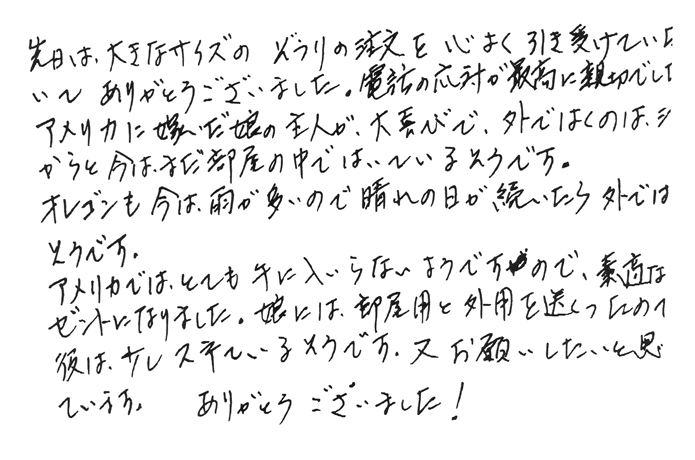 先日は、大きなサイズの ぞうりの注文を 心よく引き受けていた
いて ありがとうございました。電話の応対が最高に親切でした
アメリカに嫁いだ娘の主人が、大喜びで、外ではくのは、
からと今は、まだ部屋の中ではいているそうです。
オレゴンも今は、雨が多いので晴れの日が、続いたら外では
そうです。
アメリカでは、とても手に入いらないようですので、最高な
ゼントになりました。娘には、部屋用と外用を送くったので
後は、少し ているそうです。又お願いしたいと思
ています。 ありがとう ございました!